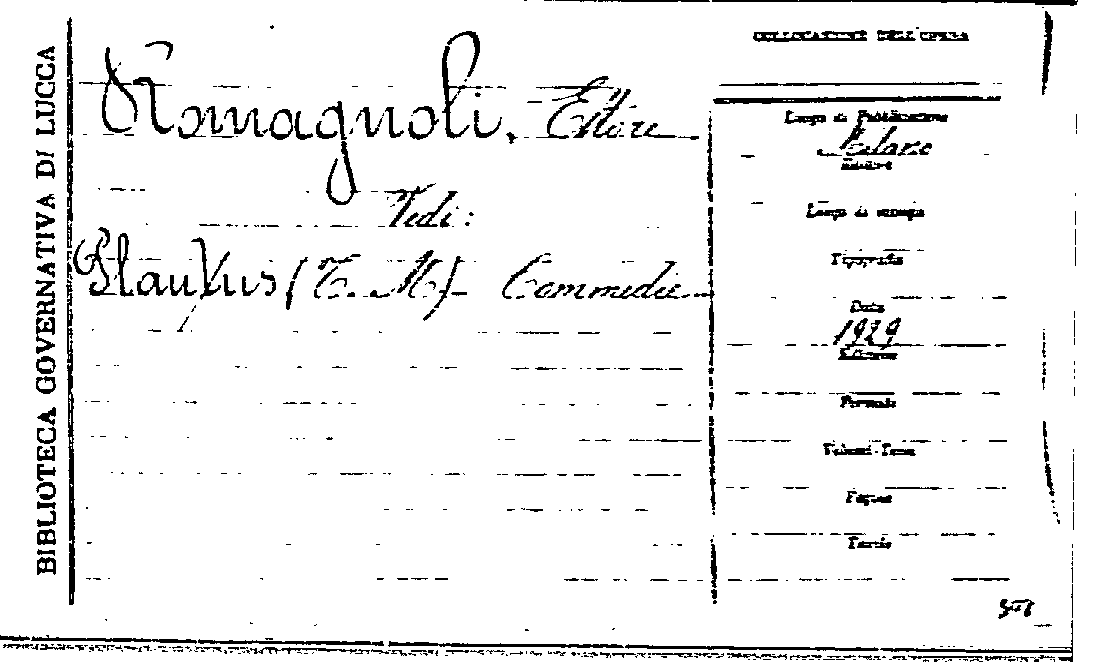 BIBLIOTECA GOVERNATIVA DI LUCCA
COLLOCAZIONE DELL'OPERA
Romagnoli, Ettore
Vedi:
Plautus (T. M.) Commedie
Luogo di Pubblicazione
Milano
Editore
Luogo di stampa
Tipografia
Data
1929
Edizione
Formato
Volumi-Tomi
Pagine